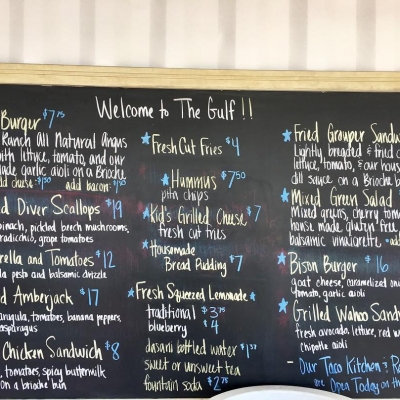 Welcome to The Gulf!!
Burger $7.75
Ranch All Natural Angus
with lettuce, tomato, and our
garlic aioli on a Brioche
add bacon
Diver Scallops $19
pickled beech mushrooms,
radicchio, grape tomatoes
and Tomatoes $12
pesto and balsamic drizzle
Amberjack $17
tomatoes, banana peppers,
asparagus
Chicken Sandwich $8
tomatoes, spicy buttermilk
on a brioche bun
Fresh Cut Fries $4
Hummus $7.50
pita chips
Kids Grilled Cheese $7
fresh cut fries
Housemade
Bread Pudding $7
Fresh Squeezed Lemonade
traditional $3.75
blueberry $4
dasani bottled water
sweet or unsweet tea
fountain soda $2.75
Fried Grouper Sandw
Lightly breaded & fried
lettuce, tomato, & our hous
dill sauce on a Brioche b
Mixed Green Salad
mixed greens, cherry tom
house made gluten free
balsamic vinaigrette
Bison Burger $16
goat cheese, caramelized on
tomato, garlic aioli
Grilled Wahoo Sand
fresh avocado, lettuce, red
chipotle aioli
- Our Taco Kitchen & R
are Open Today on th